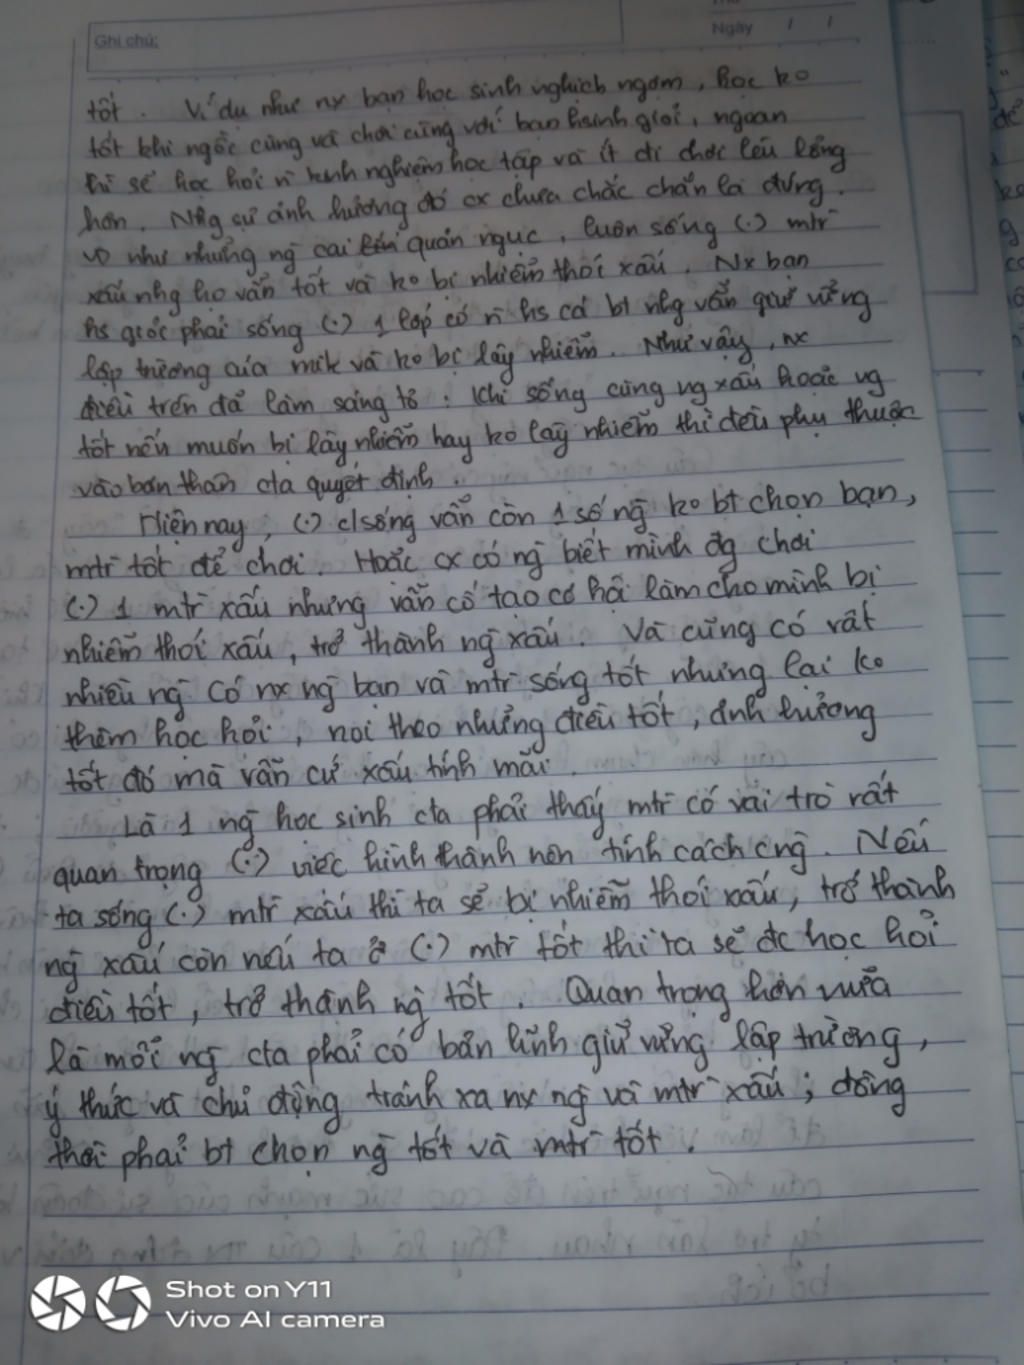 Ghi chú:
Ngày / /
tốt. Ví dụ như nx bạn học sinh nghịch ngợm, học ko
tốt khi ngồi cùng và chơi cùng với bạn hsinh giỏi, ngoan
thì sẽ học hỏi n kinh nghiệm học tập và ít đi chơi lêu lổng
hơn. Nhg sự ảnh hưởng đó cx chưa chắc chắn là đúng.
VD như những ng cai quản ngục, luôn sống (.) mtr
xấu nhg họ vẫn tốt và ko bị nhiễm thói xấu. Nx bạn
hs giỏi phải sống (.) 1 lớp có n hs cá bt nhg vẫn giữ vững
lập trường của mik và ko bị lây nhiễm. Như vậy, nx
điều trên đã làm sáng tỏ: Khi sống cùng ng xấu hoặc ng
tốt nếu muốn bị lây nhiễm hay ko lây nhiễm thì đều phụ thuộc
vào bản thân cta quyết định.
Hiện nay, (.) c/sống vẫn còn 1 số ng ko bt chọn bạn,
mtr tốt để chơi. Hoặc cx có ng biết mình đg chơi
(.) 1 mtr xấu nhưng vẫn cố tạo cơ hội làm cho mình bị
nhiễm thói xấu, trở thành ng xấu. Và cũng có rất
nhiều ng có nx ng bạn và mtr sống tốt nhưng lại ko
thèm học hỏi, noi theo những điều tốt, ảnh hưởng
tốt đó mà vẫn cứ xấu tính mãi.
Là 1 ng học sinh cta phải thấy mtr có vai trò rất
quan trọng (.) việc hình thành nên tính cách cng. Nếu
ta sống (.) mtr xấu thì ta sẽ bị nhiễm thói xấu, trở thành
ng xấu còn nếu ta ở (.) mtr tốt thì ta sẽ đc học hỏi
điều tốt, trở thành ng tốt. Quan trọng hơn nữa
là mỗi ng cta phải có bản lĩnh giữ vững lập trường,
ý thức và chủ động tránh xa nx ng và mtr xấu; đồng
thời phải bt chọn ng tốt và mtr tốt.
Shot on Y11
Vivo AI camera